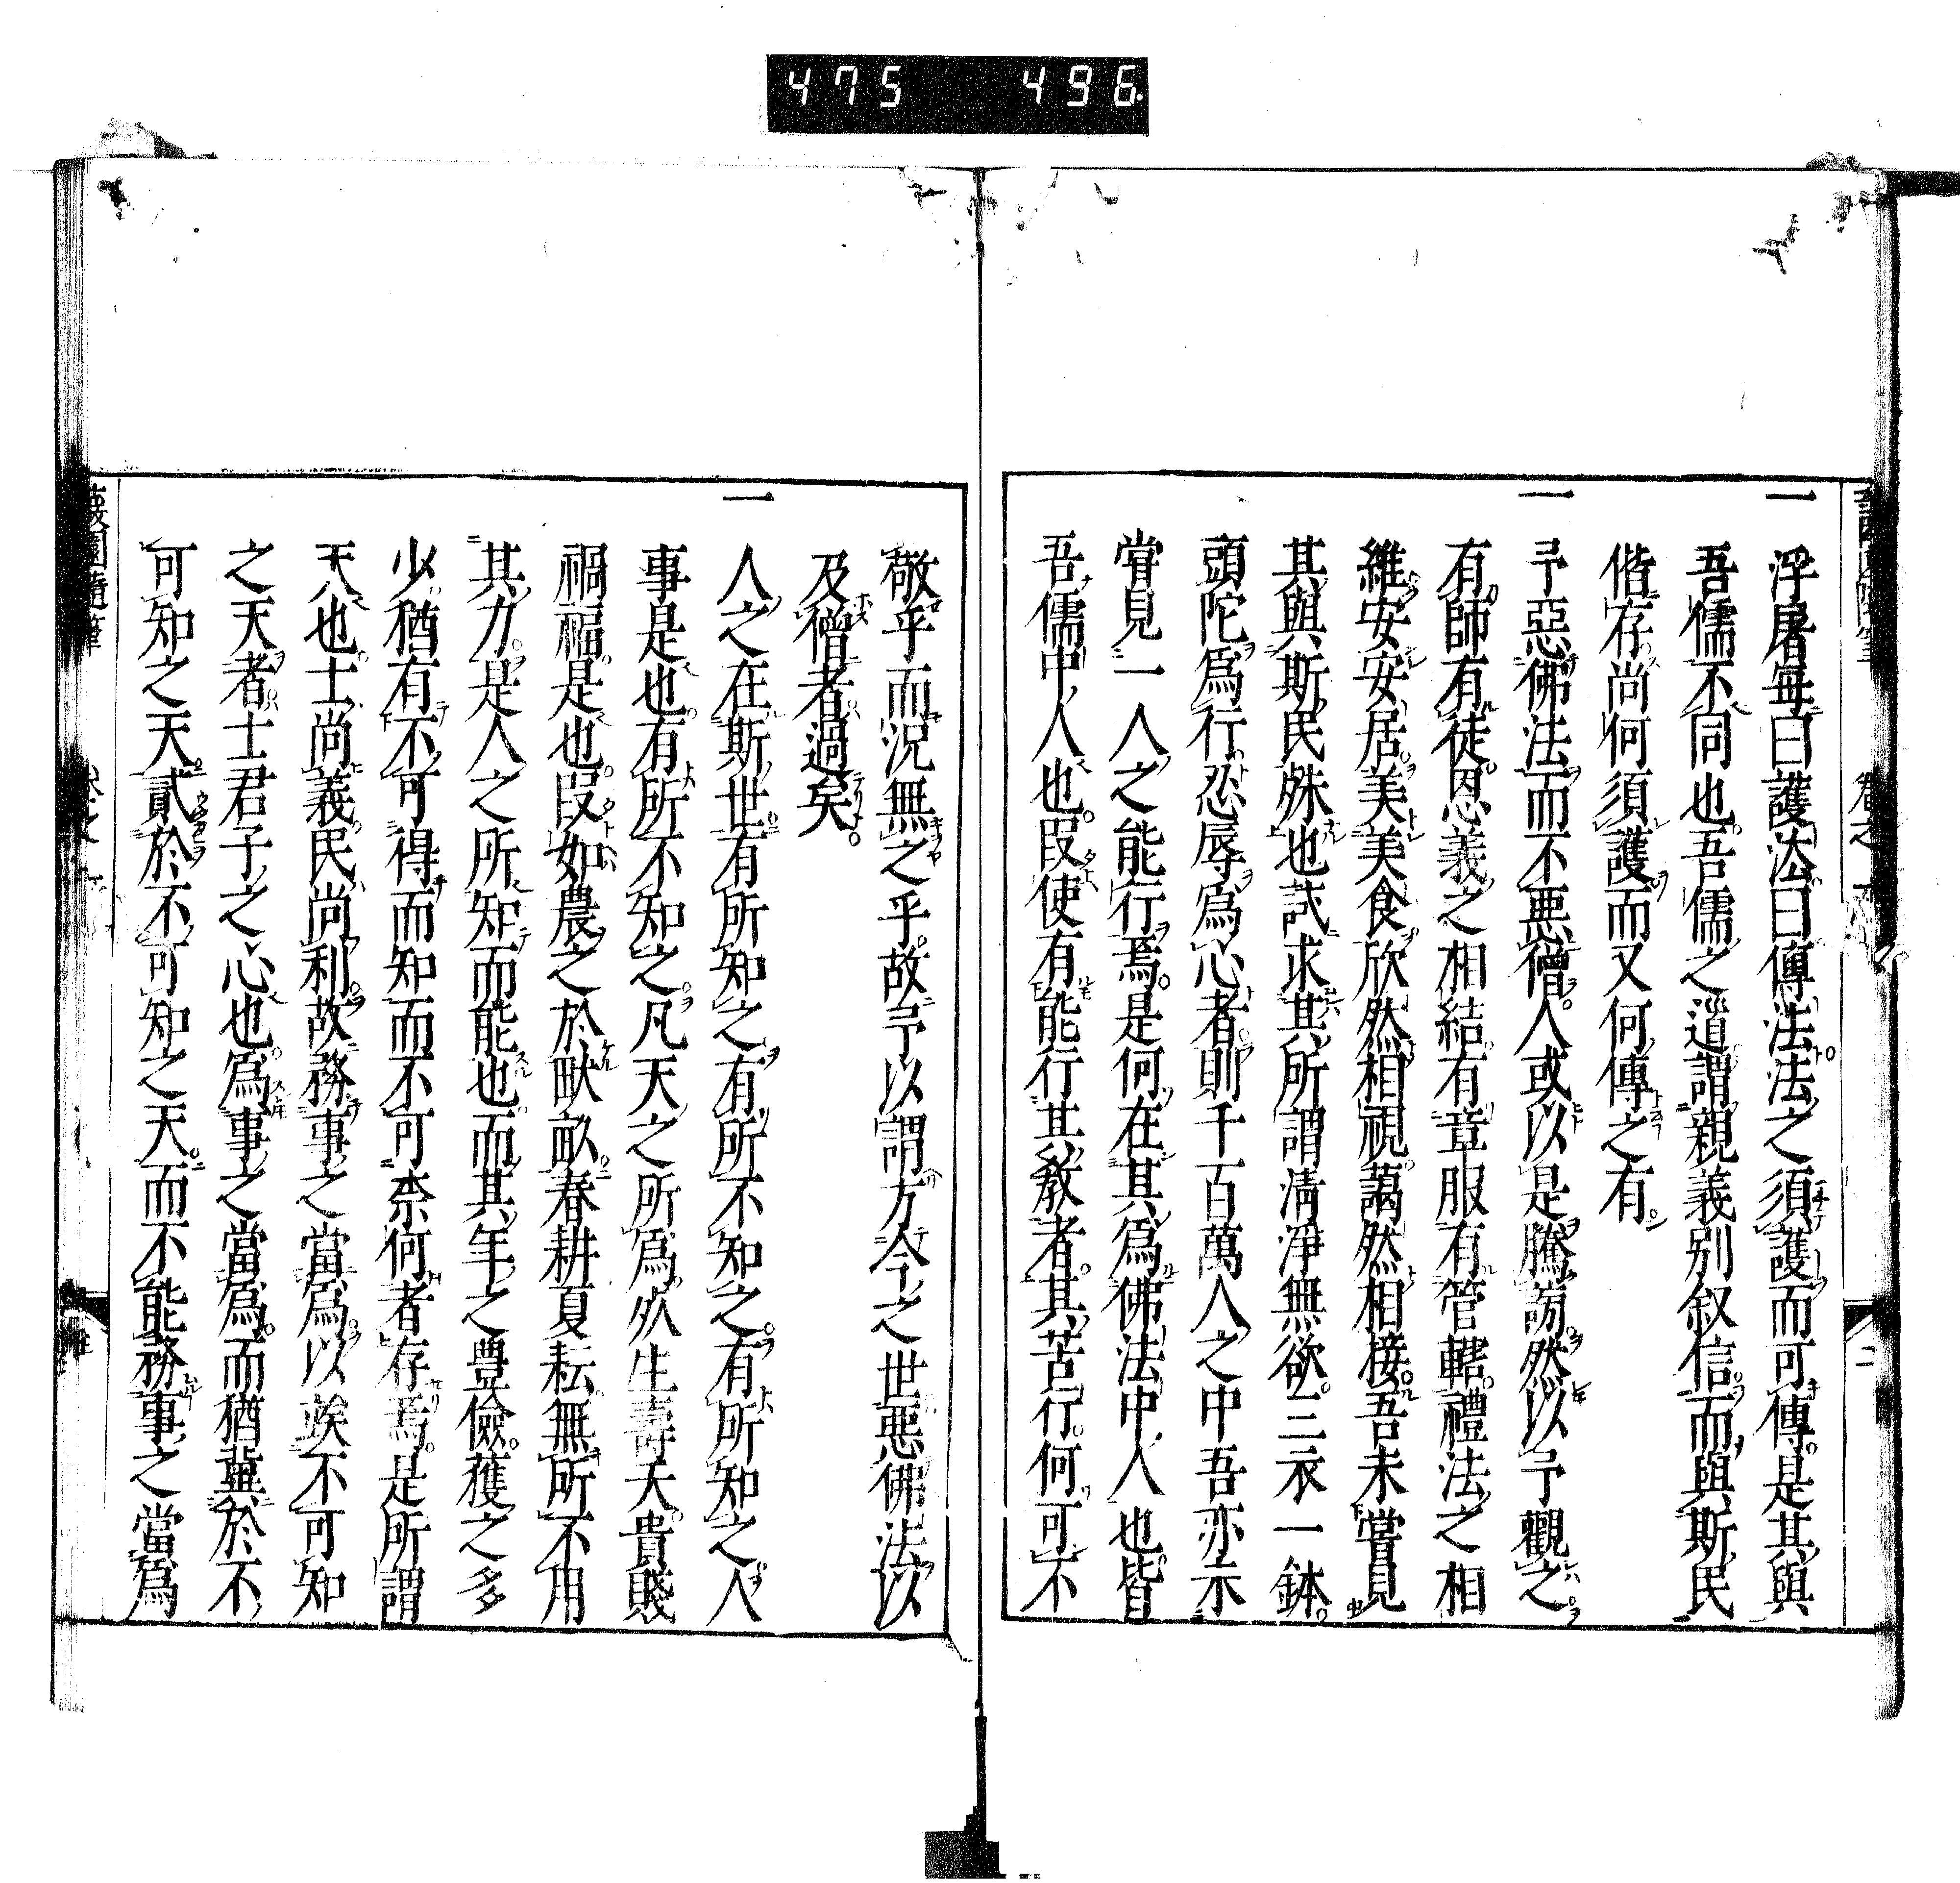 475 496
一浮屠每曰護法曰傳法法之須護而可傳是其與
吾儒不同也吾儒之道謂親義別叙信而與斯民
偕存尚何須護而又何傳之有
一予惡佛法而不惡僧人或以是騰謗然以予觀之
有師有徒恩義之相結有章服有管轄禮法之相
維安安居美美食欣然相視藹然相接吾未嘗見
其與斯民殊也試求其所謂清淨無欲三衣一鉢
頭陀爲行忍辱爲心者則千百萬人之中吾亦未
嘗見一人之能行焉是何在其爲佛法中人也皆
吾儒中人也叚使有能行其敎者其苦行何可不
敬乎而况無之乎故予以謂方今之世惡佛法以
及僧者過矣
一人之在斯世有所知之有所不知之有所知之人
事是也有所不知之凡天之所爲必生壽夭貴賤
禍福是也叚如農之於畎畝春耕夏耘無所不用
其力是人之所知而能也而其年之豊儉穫之多
少猶有不可得而知而不可柰何者存焉是所謂
天也士尚義民尚利故務事之當爲以俟不可知
之天者士君子之心也爲事之當爲而猶冀於不
可知之天貳於不可知之天而不能務事之當爲
蘐園隨筆